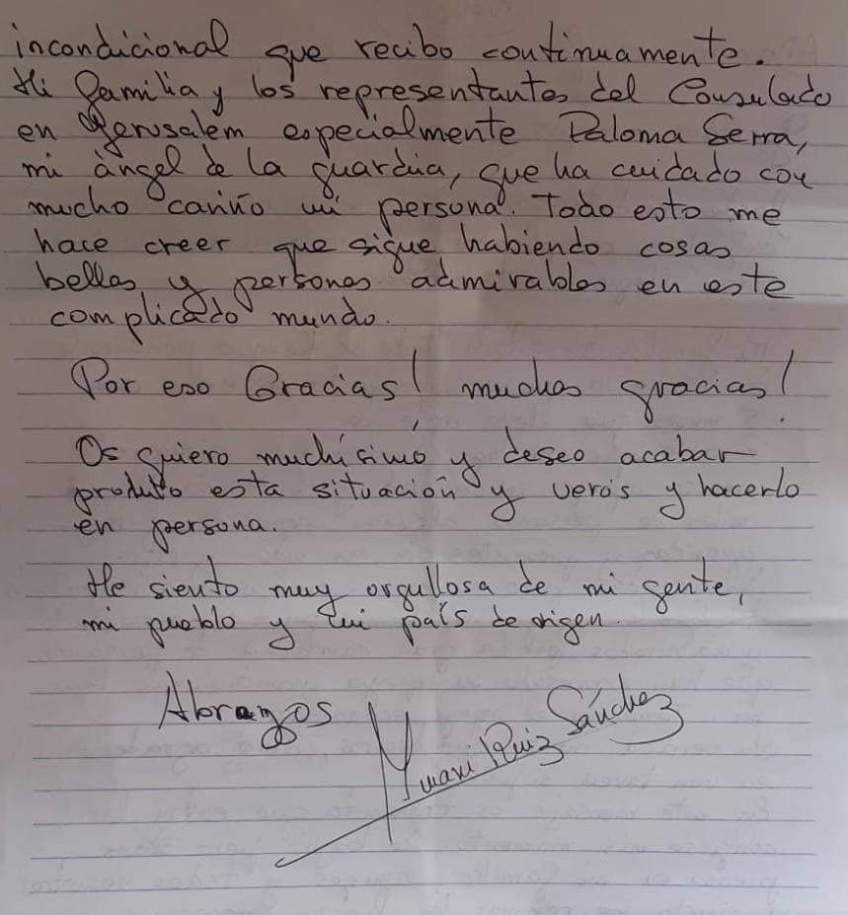 incondicional que recibo continuamente.
Mi familia y los representantes del Consulado
en Jerusalem especialmente Paloma Serra,
mi ángel de la guardia, que ha cuidado con
mucho cariño mi persona. Todo esto me
hace creer que sigue habiendo cosas
bellas y personas admirables en este
complicado mundo.
Por eso Gracias! muchas gracias!
Os quiero muchísimo y deseo acabar
produto esta situación y veros y hacerlo
en persona.
Me siento muy orgullosa de mi gente,
mi pueblo y mi país de origen.
Abrazos
Ruiz Sánchez